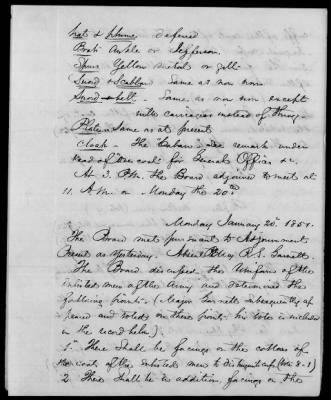 Hat & plume deferred
Boots Ankle or Jefferson.
Spurs Yellow metal or gilt.
Sword & Scabbard Same as now worn
Sword-belt. Same as now worn except
with carriages instead of
Plate. Same as at present
Cloak. The "Cabaan" See remark under
head of "over coat" for General Officers &c.
At 3. P.M. the Board adjourned to meet at
11. A.M. on Monday the 20th
Monday January 20th 1851.
The Board met pursuant to Adjournment
Present as Yesterday. Absent Major R. S. Garnett.
The Board discussed the Uniform of the
enlisted men of the Army and determined the
following points - (Major Garnett subsequently ap
peared and voted on these points, his vote is included
in the record below).
1. There shall be facings on the collars of
the coats of the enlisted men to distinguish corps (Vote 8-1)
2. There shall be in addition, facings on the